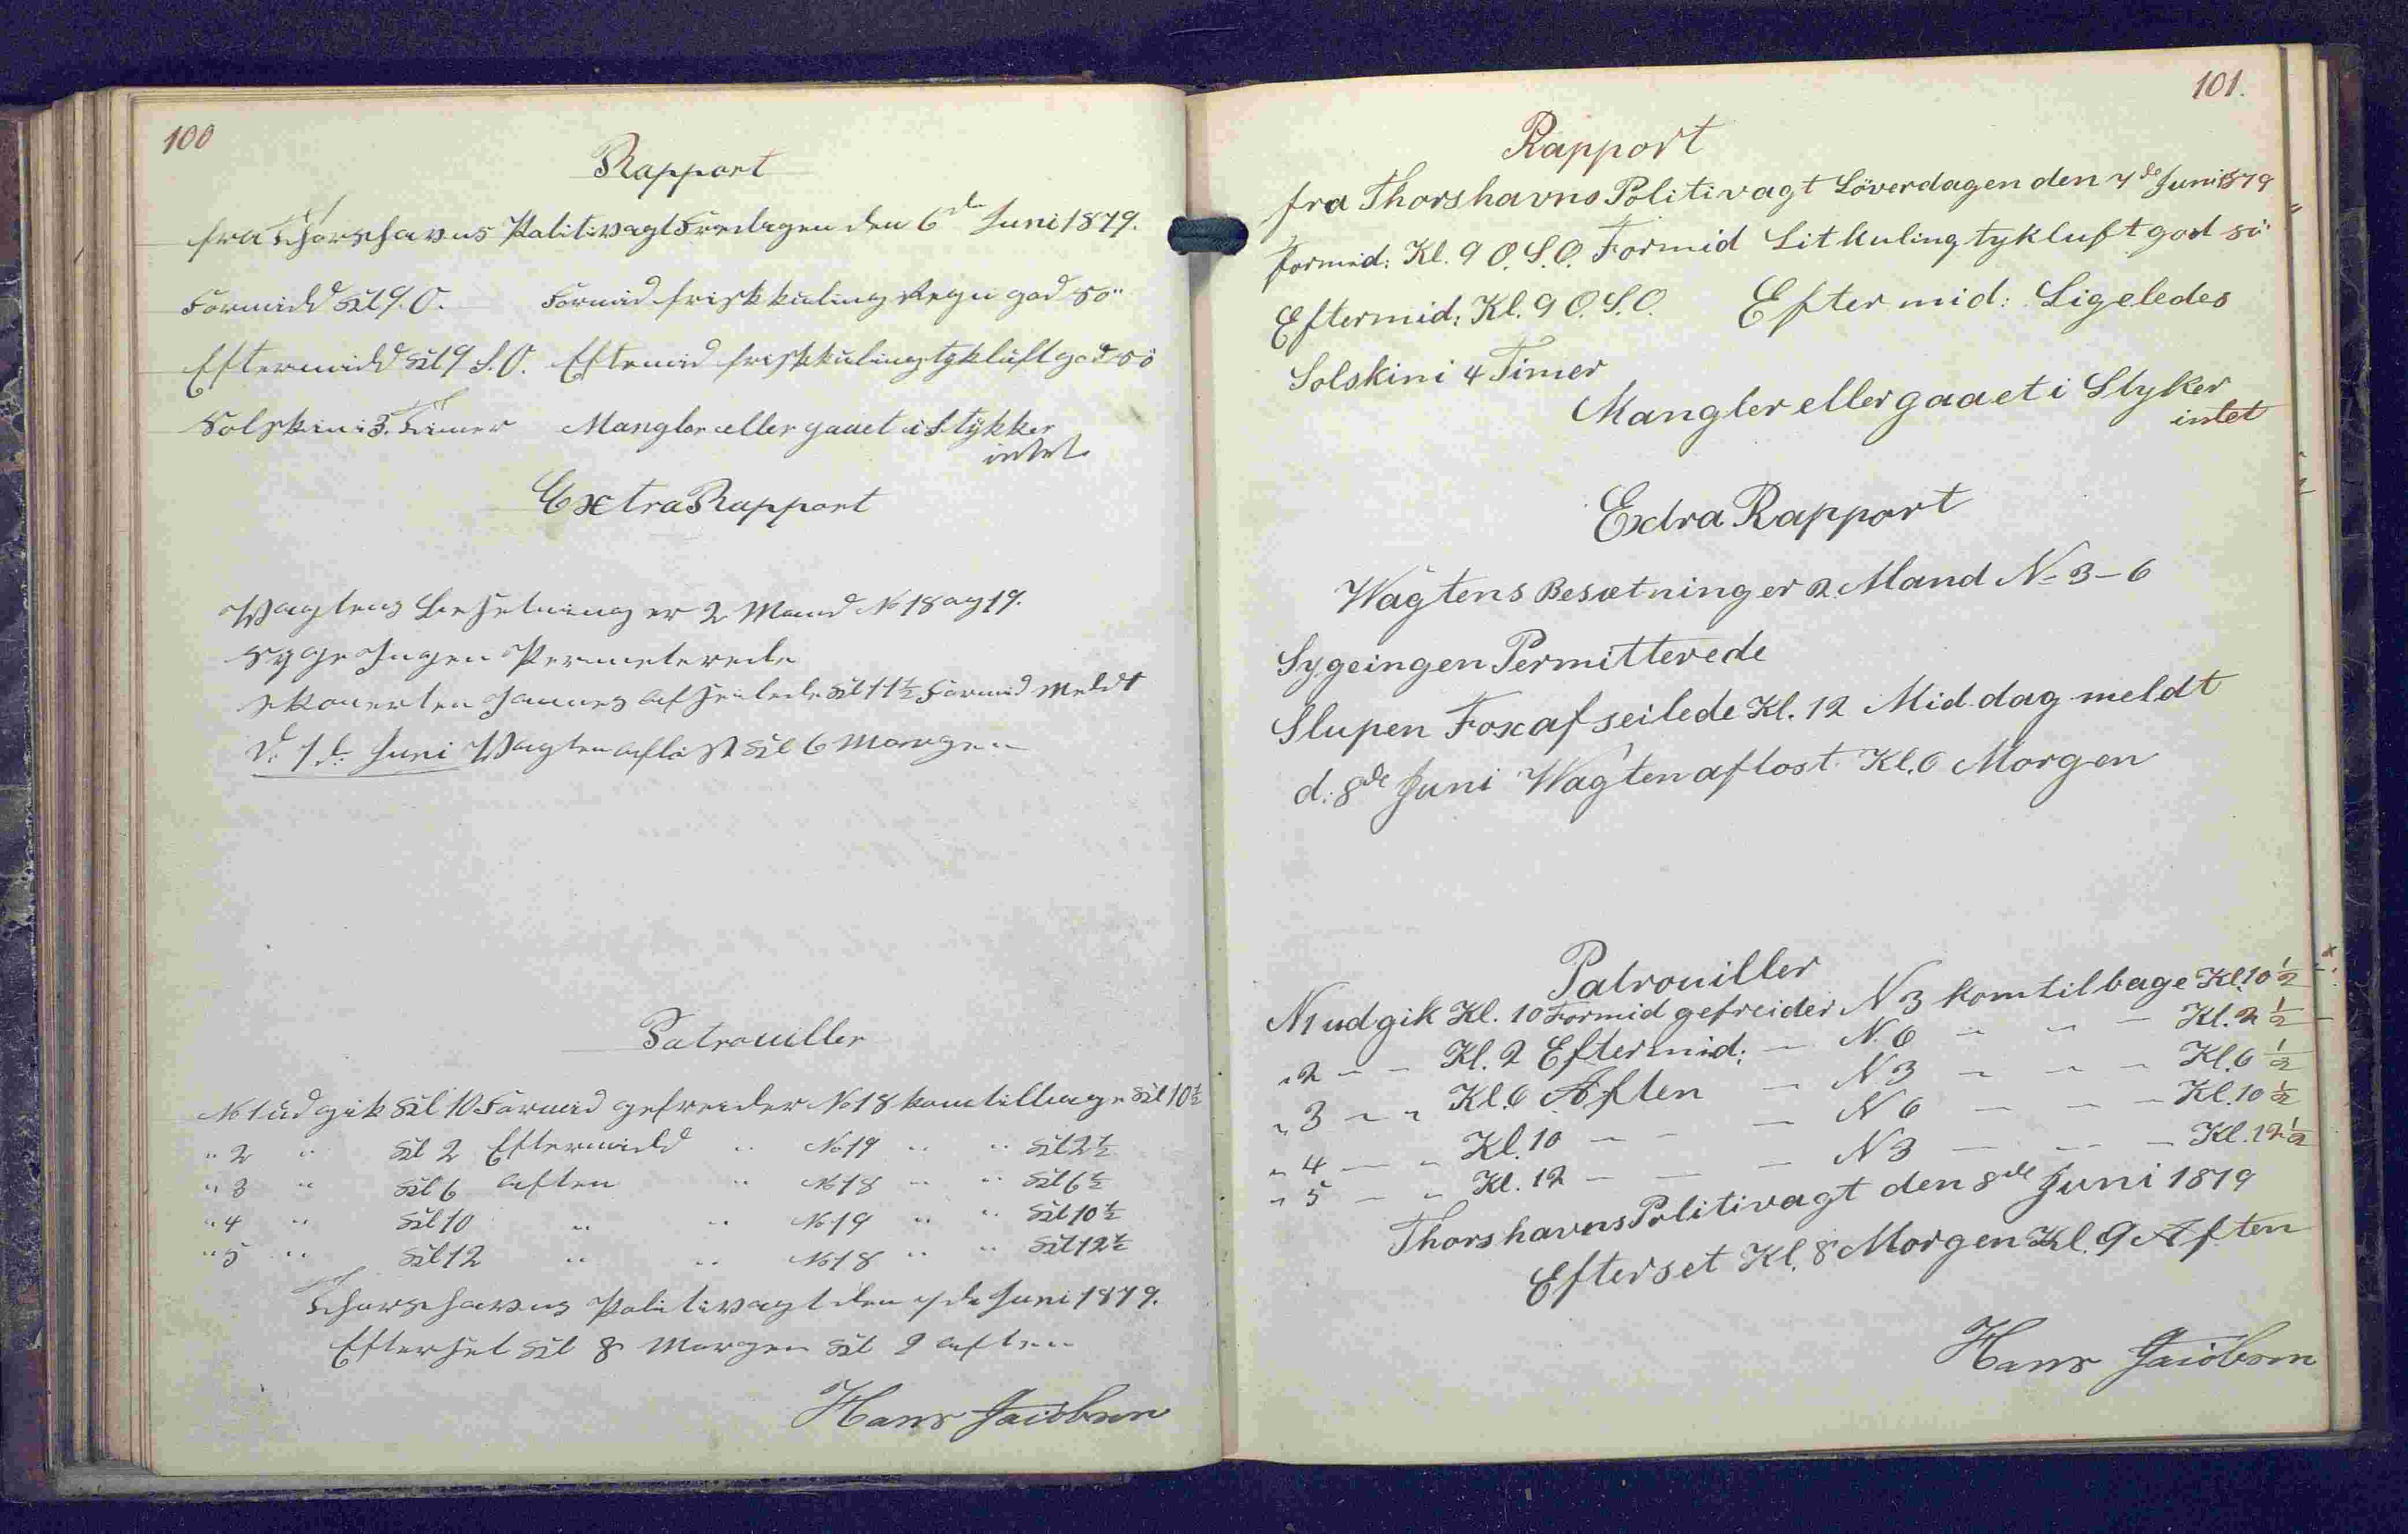 100
Rapport
fra Thorshavns Politivagt Fredagen den 6de Juni 1879.
Formidd Kl 9. O. Formid frisk kuling Regn god sö
Eftermidd Kl 9 S.O. Eftemid frisk kuling tykluft god sö
Solskin i 3. Timer Mangler eller gaaet i Stykker
intet
Extra Rapport
Vagtens Besetning er 2 Mand No 18 og 19.
Syge Ingen Permeterede
Skonerten Jannes afseilede Kl 11½ Formid Meldt
d. 7d. Juni Vagten aflöst Kl 6 Morgen
Patrouiller
No 1 udgik Kl 10 Formid gefreider No 18 kom tilbage Kl 10½
" 2 " Kl 2 Eftermidd " No 19 " " Kl 2½
" 3 " Kl 6 Aften " No 18 " " Kl 6½
" 4 " Kl 10 " " No 19 " " Kl 10½
" 5 " Kl 12 " " No 18 " " Kl 12½
Thorshavns Politivagt den 7de Juni 1879.
Efterset Kl 8 Morgen Kl 9 Aften
Hans Jacobsen
101.
Rapport
fra Thorshavns Politivagt Löverdagen den 7de Juni 1879
Formid: Kl. 9 O. S. O. Formid Lit kuling tykluft god sö
Eftermid: Kl. 9 O. S. O. Efter mid: Ligeledes
Solskin i 4 Timer
Mangler eller gaaet i Styker
intet
Exdra Rapport
Wagtens Besætning er 2 Mand N= 3-6
Syge ingen Permitterede
Slupen Fox af seilede Kl. 12 Mid dag meldt
d: 8de Juni Wagten aflost Kl. 6 Morgen
Patrouiller
N 1 udgik Kl. 10 Formid gefreider N 3 kom tilbage Kl. 10½
" 2 — — Kl. 2 Eftermid: — N. 6 — — — Kl. 2½
" 3 — " Kl. 6 Aften — N 3 — — — Kl. 6½
" 4 — " Kl. 10 — — — N 6 — — — Kl. 10½
" 5 — " Kl. 12 — — — N 3 — — — Kl. 12½
Thorshavns Politivagt den 8de Juni 1879
Efterset Kl. 8 Morgen Kl. 9 Aften
Hans Jacobsen